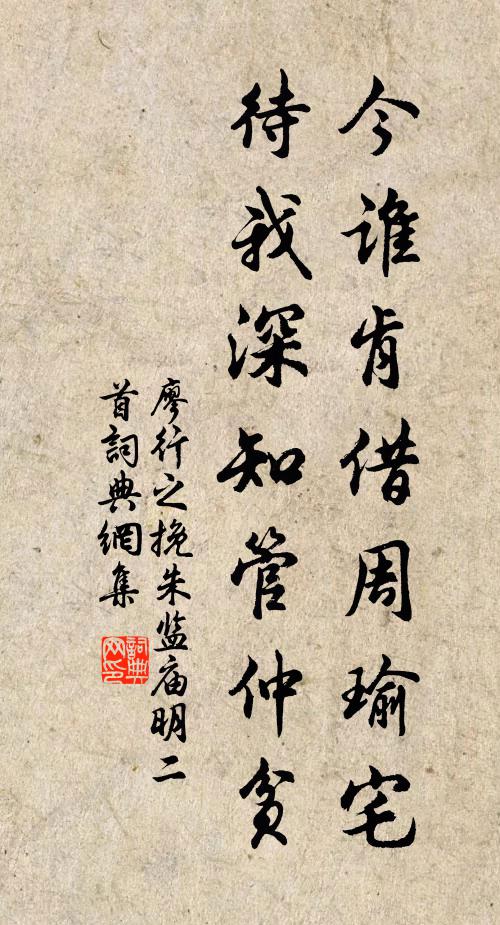 今誰肯借周瑜宅
待我深知管仲貧
廖行之挽朱监庙明二
首詞典網集
詞典
网印